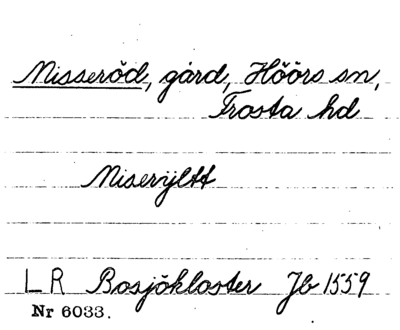 Misseröd, gård, Höörs sn,
Frosta hd
Miserÿltt
LR Bosjökloster Jb 1559
Nr 6033.